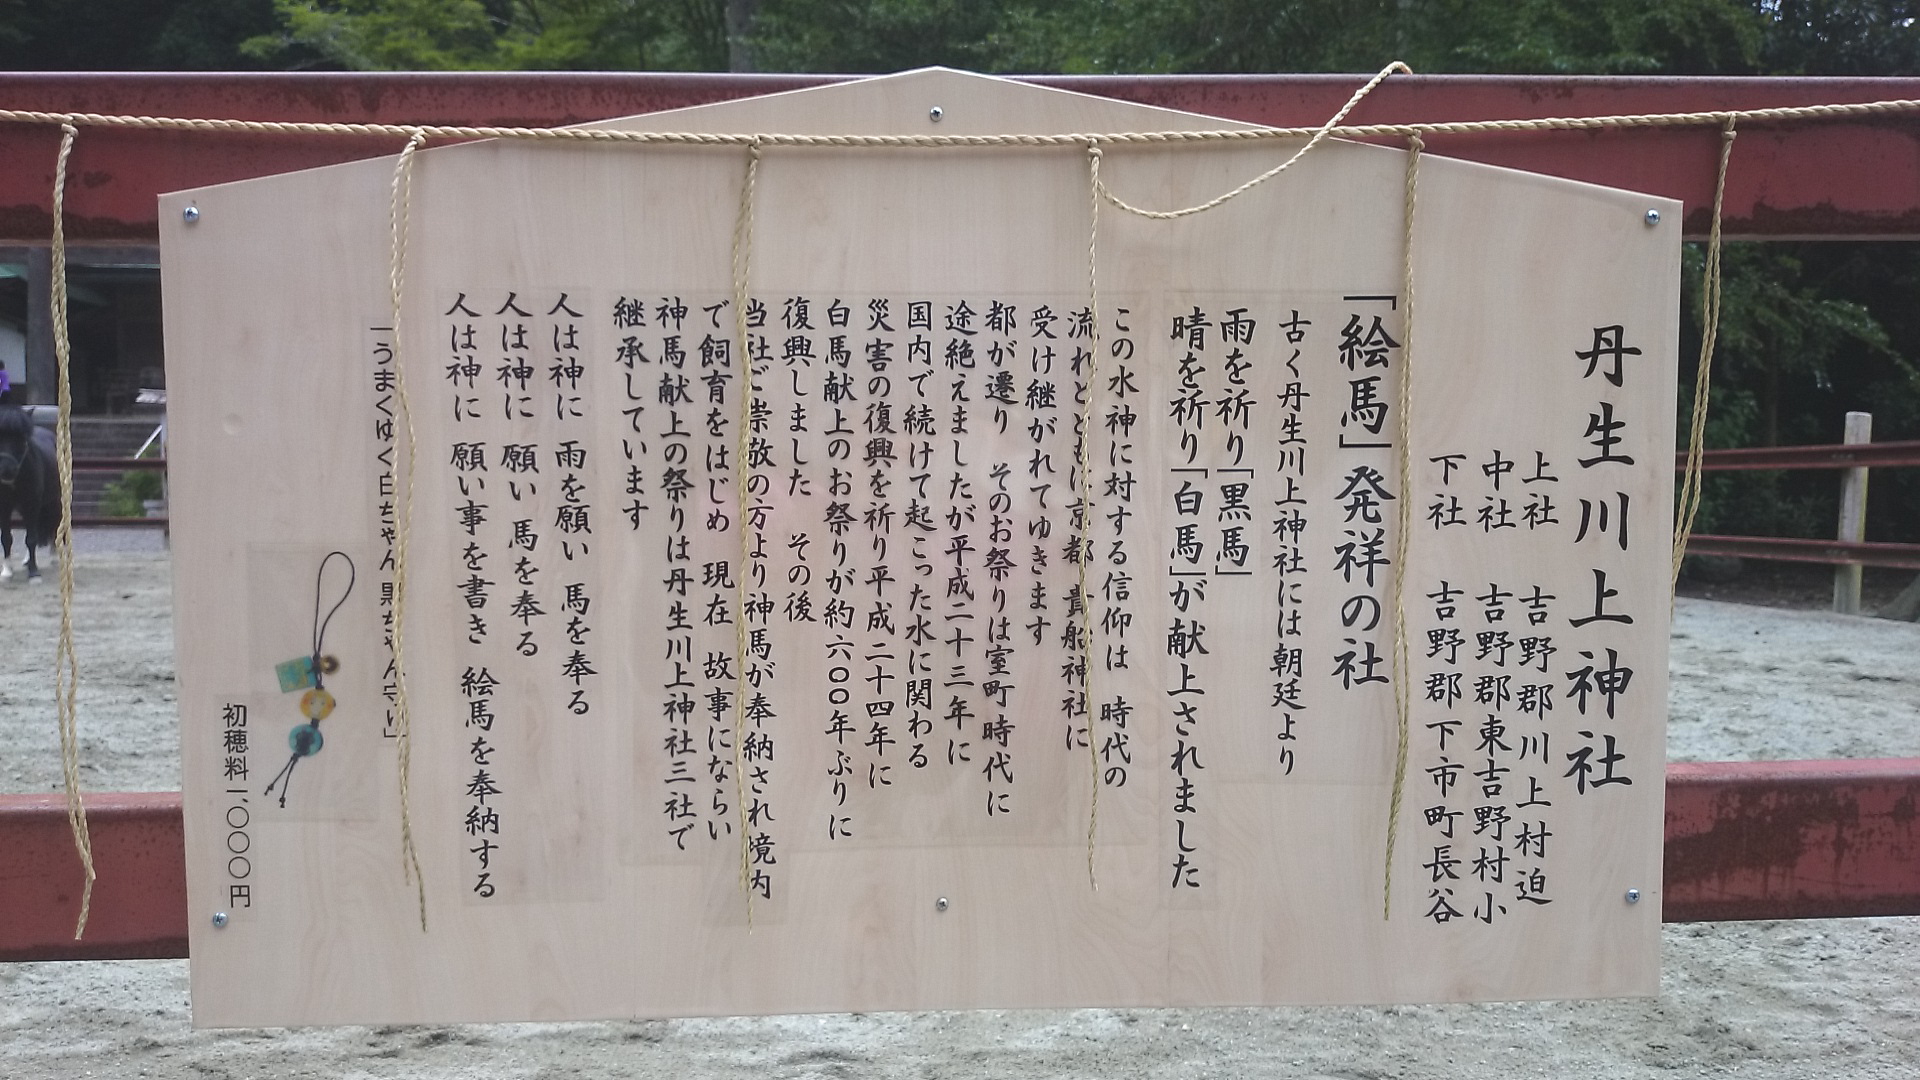 丹生川上神社
上社 吉野郡川上村迫
中社 吉野郡東吉野村小
下社 吉野郡下市町長谷
「絵馬」発祥の社
古く丹生川上神社には朝廷より
雨を祈り「黒馬」
晴を祈り「白馬」が献上されました
この水神に対する信仰は 時代の
流れとともに京都 貴船神社に
受け継がれてゆきます
都が遷り そのお祭りは室町時代に
途絶えましたが平成二十三年に
国内で続けて起こった水に関わる
災害の復興を祈り平成二十四年に
白馬献上のお祭りが約六〇〇年ぶりに
復興しました その後
当社ご崇敬の方より神馬が奉納され境内
で飼育をはじめ 現在 故事にならい
神馬献上の祭りは丹生川上神社三社で
継承しています
人は神に 雨を願い 馬を奉る
人は神に 願い 馬を奉る
人は神に 願い事を書き 絵馬を奉納する
「うまくゆく白ちゃん黒ちゃん守り」
初穂料一、〇〇〇円